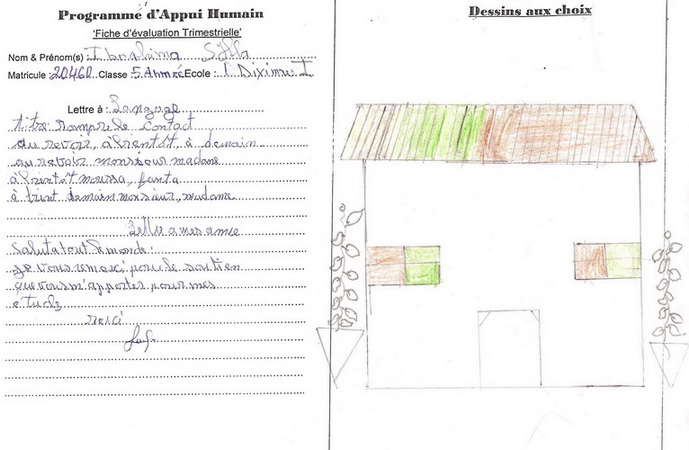 Programme d'Appui Humain
'Fiche d'évaluation Trimestrielle'
Nom & Prénom(s) : Ibrahima Sylla
Matricule 20460 Classe 5 Année Ecole : Dixinn I
Lettre à : Langage
titre rompre le contact
au revoir, a bientôt à demain
au revoir monsieur madame
à bientôt moussa, fanta
à demain monsieur, madame
a mes amie
Salut a tout le monde :
je vous remerci pour le soutien
que vous m'apportez pour mes
étude
merci
Dessins aux choix